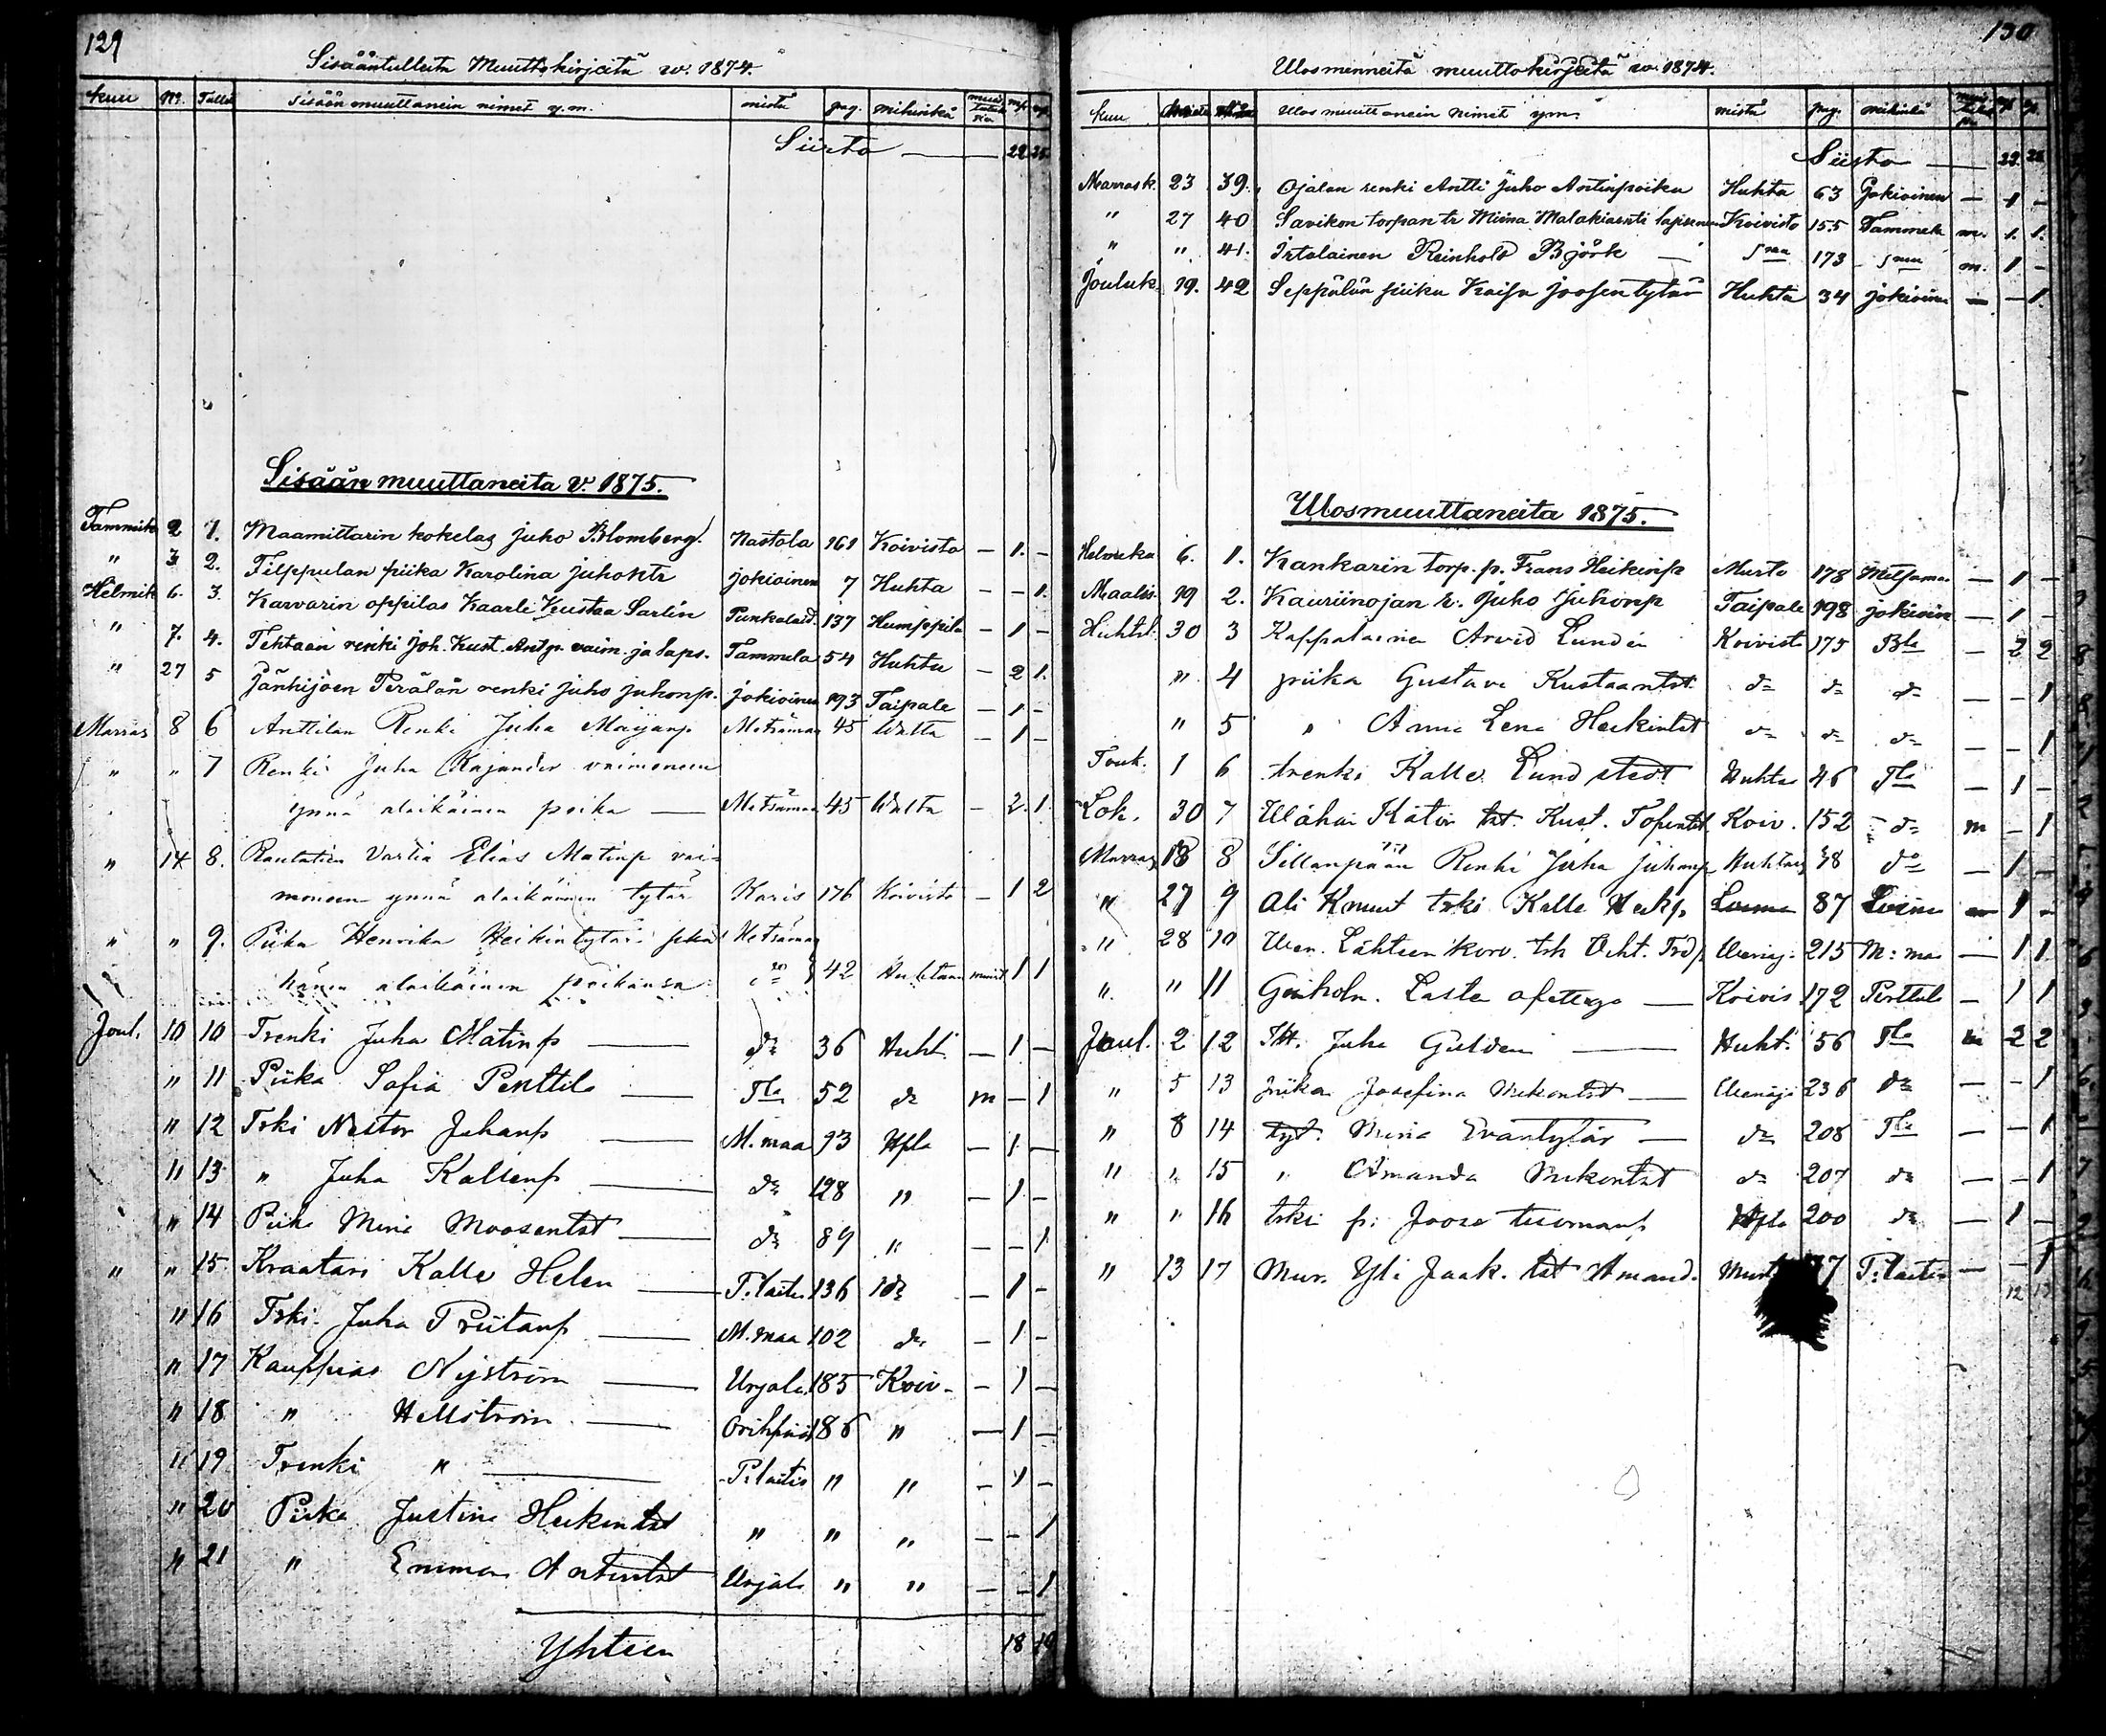 129
Sisääntulleita Muuttokirjeitä w. 1874.
Kuu No. Tällä Sisään muuttanein nimet y.m. mistä pag. mihinkä mp. vp.
Siirto — 22 25
Sisään muuttaneita v. 1875.
Tammik 2 1. Maamittarin kokelas Juho Blomberg. Nastola 161 Koivisto — 1. —
" 3 2. Filppulan piika Karolina Juhontr Jokioinen 7 Huhta — — 1.
Helmik 6. 3. Karvarin oppilas Kaarle Kustaa Sarlin Punkalaid. 137 Humppila — 1 —
" 7. 4. Tehtaan renki Joh. Kust. Antp. vaim. ja laps. Tammela 54 Huhta — 2 1.
" 27 5 Jänhijoen Perälän renki Juho Juhonp. Jokioinen 193 Taipale — 1 —
Marras 8 6 Anttilan Renki Juha Maijanp Metsämaa 45 Walta — 1 —
" " 7 Renki Juha Kajander vaimoneen
ynnä alaikäinen poika — Metsämaa 45 Walta — 2. 1.
" 14 8. Rautatien Vartia Elias Matinp vai-
moneen ynnä alaikäinen tytär Karis 176 Koivisto — 1 2
" " 9. Piika Henrika Heikintytär sekä Metsämaa
hänen alaikäinen poikansa 42 Huhtaan muist 1 1
Joul. 10 10 Trenki Juha Matinp — do 36 Huht. — 1 —
" 11 Piika Sofia Penttilä — Tla 52 do m — 1
" 12 Trki Nestor Juhanp — M. maa 93 Hpla — 1 —
" 13 " Juha Kallenp — do 128 " — 1 —
" 14 Piika Mina Moosentst — do 89 " — — 1
" " 15. Kraatari Kalle Helen — P. laitio 136 do — 1 —
" 16 Trki. Juha Priitanp — M. maa 102 do — 1 —
" 17 Kauppias Nyström — Urjala 185 Koiv. — 1 —
" 18 " Hellström — Oripää 186 " — 1 —
" 19 Trenki " — P. laitio " " — 1 —
" 20 Piika Justina Heikintst " " " — — 1
" 21 " Emma Antintst Urjala " " — — 1
Yhteen 18 10
130
Ulosmenneitä muuttokirjeitä w. 1874.
Kuu Ulos muuttanein nimet ym. mistä pag. mihinkä mp. vp.
Siirto — 22. 28
Marrask. 23 39. Ojalan renki Antti Juho Antinpoika Huhta 63 Jokioinen — 1 —
" 27 40 Savikon torpan tr Miina Malakiantr lapsineen Koivisto 155 Tammela m. 1. 1.
" " 41. Irtolainen Reinhold Björk — Sma 173 Sma m. 1 —
Jouluk. 19. 42 Seppälän piika Kaisa Joosentytär Huhta 34 Jokioinen — — 1.
Ulosmuuttaneita 1875.
Helmika 6. 1. Kankarin torp. p. Frans Heikinp Murto 178 Metsämaa — 1 —
Maalis. 19 2. Kauriinojan r. Juho Juhonp Taipale 198 Jokioin — 1 —
Huhtik. 30 3 Kappalainen Arvid Lundén Koivisto 175 Bla — 2 2
" 4 piika Gustava Kustaantst. do do do — — 1
" 5 " Anna Lena Heikintst do do do — — 1
Touk. 1 6 trenki Kalle Lundstedt Huhta 46 Tla — 1 —
Lok. 30 7 Wähän Kätön tst. Kust. Topintst Koiv. 152 do m — 1
Marras 18 8 Sillanpään Renki Juha Juhanp Huhtaa 48 do — 1 —
" 27 9 Ali Knuut trki Kalle Heikp Loima 87 Loima — 1 —
" 28 10 Wen. Lähteen korv. trk Veht. Frdp Wenäj. 215 M: maa — 1 1
" " 11 — Koivis 172 Perttula — 1 1
Joul. 2 12 Itt. Juha Gulden — Huht. 56 Tla m 2 2
" 5 13 piika Josefina Mikontst — Wenäjä 236 do — — 1
" 8 14 tyt. Mina Evantytär — do 208 Tla — — 1
" " 15 " Amanda Mikontst do 207 do — — 1
" " 16 trki p: Joose Tuomanp Hpla 200 do — 1 —
" 13 17 Mur. Yli Jaak. tst Amand. Murt 77 P. laitio — — 1
12 13